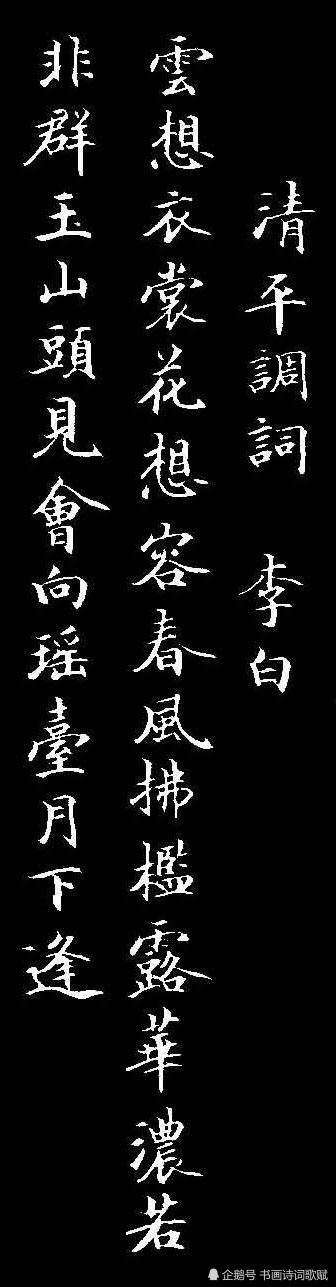 清平調詞 李白
雲想衣裳花想容春風拂檻露華濃若
非群玉山頭見會向瑶臺月下逢
企鹅号 书画诗词歌赋